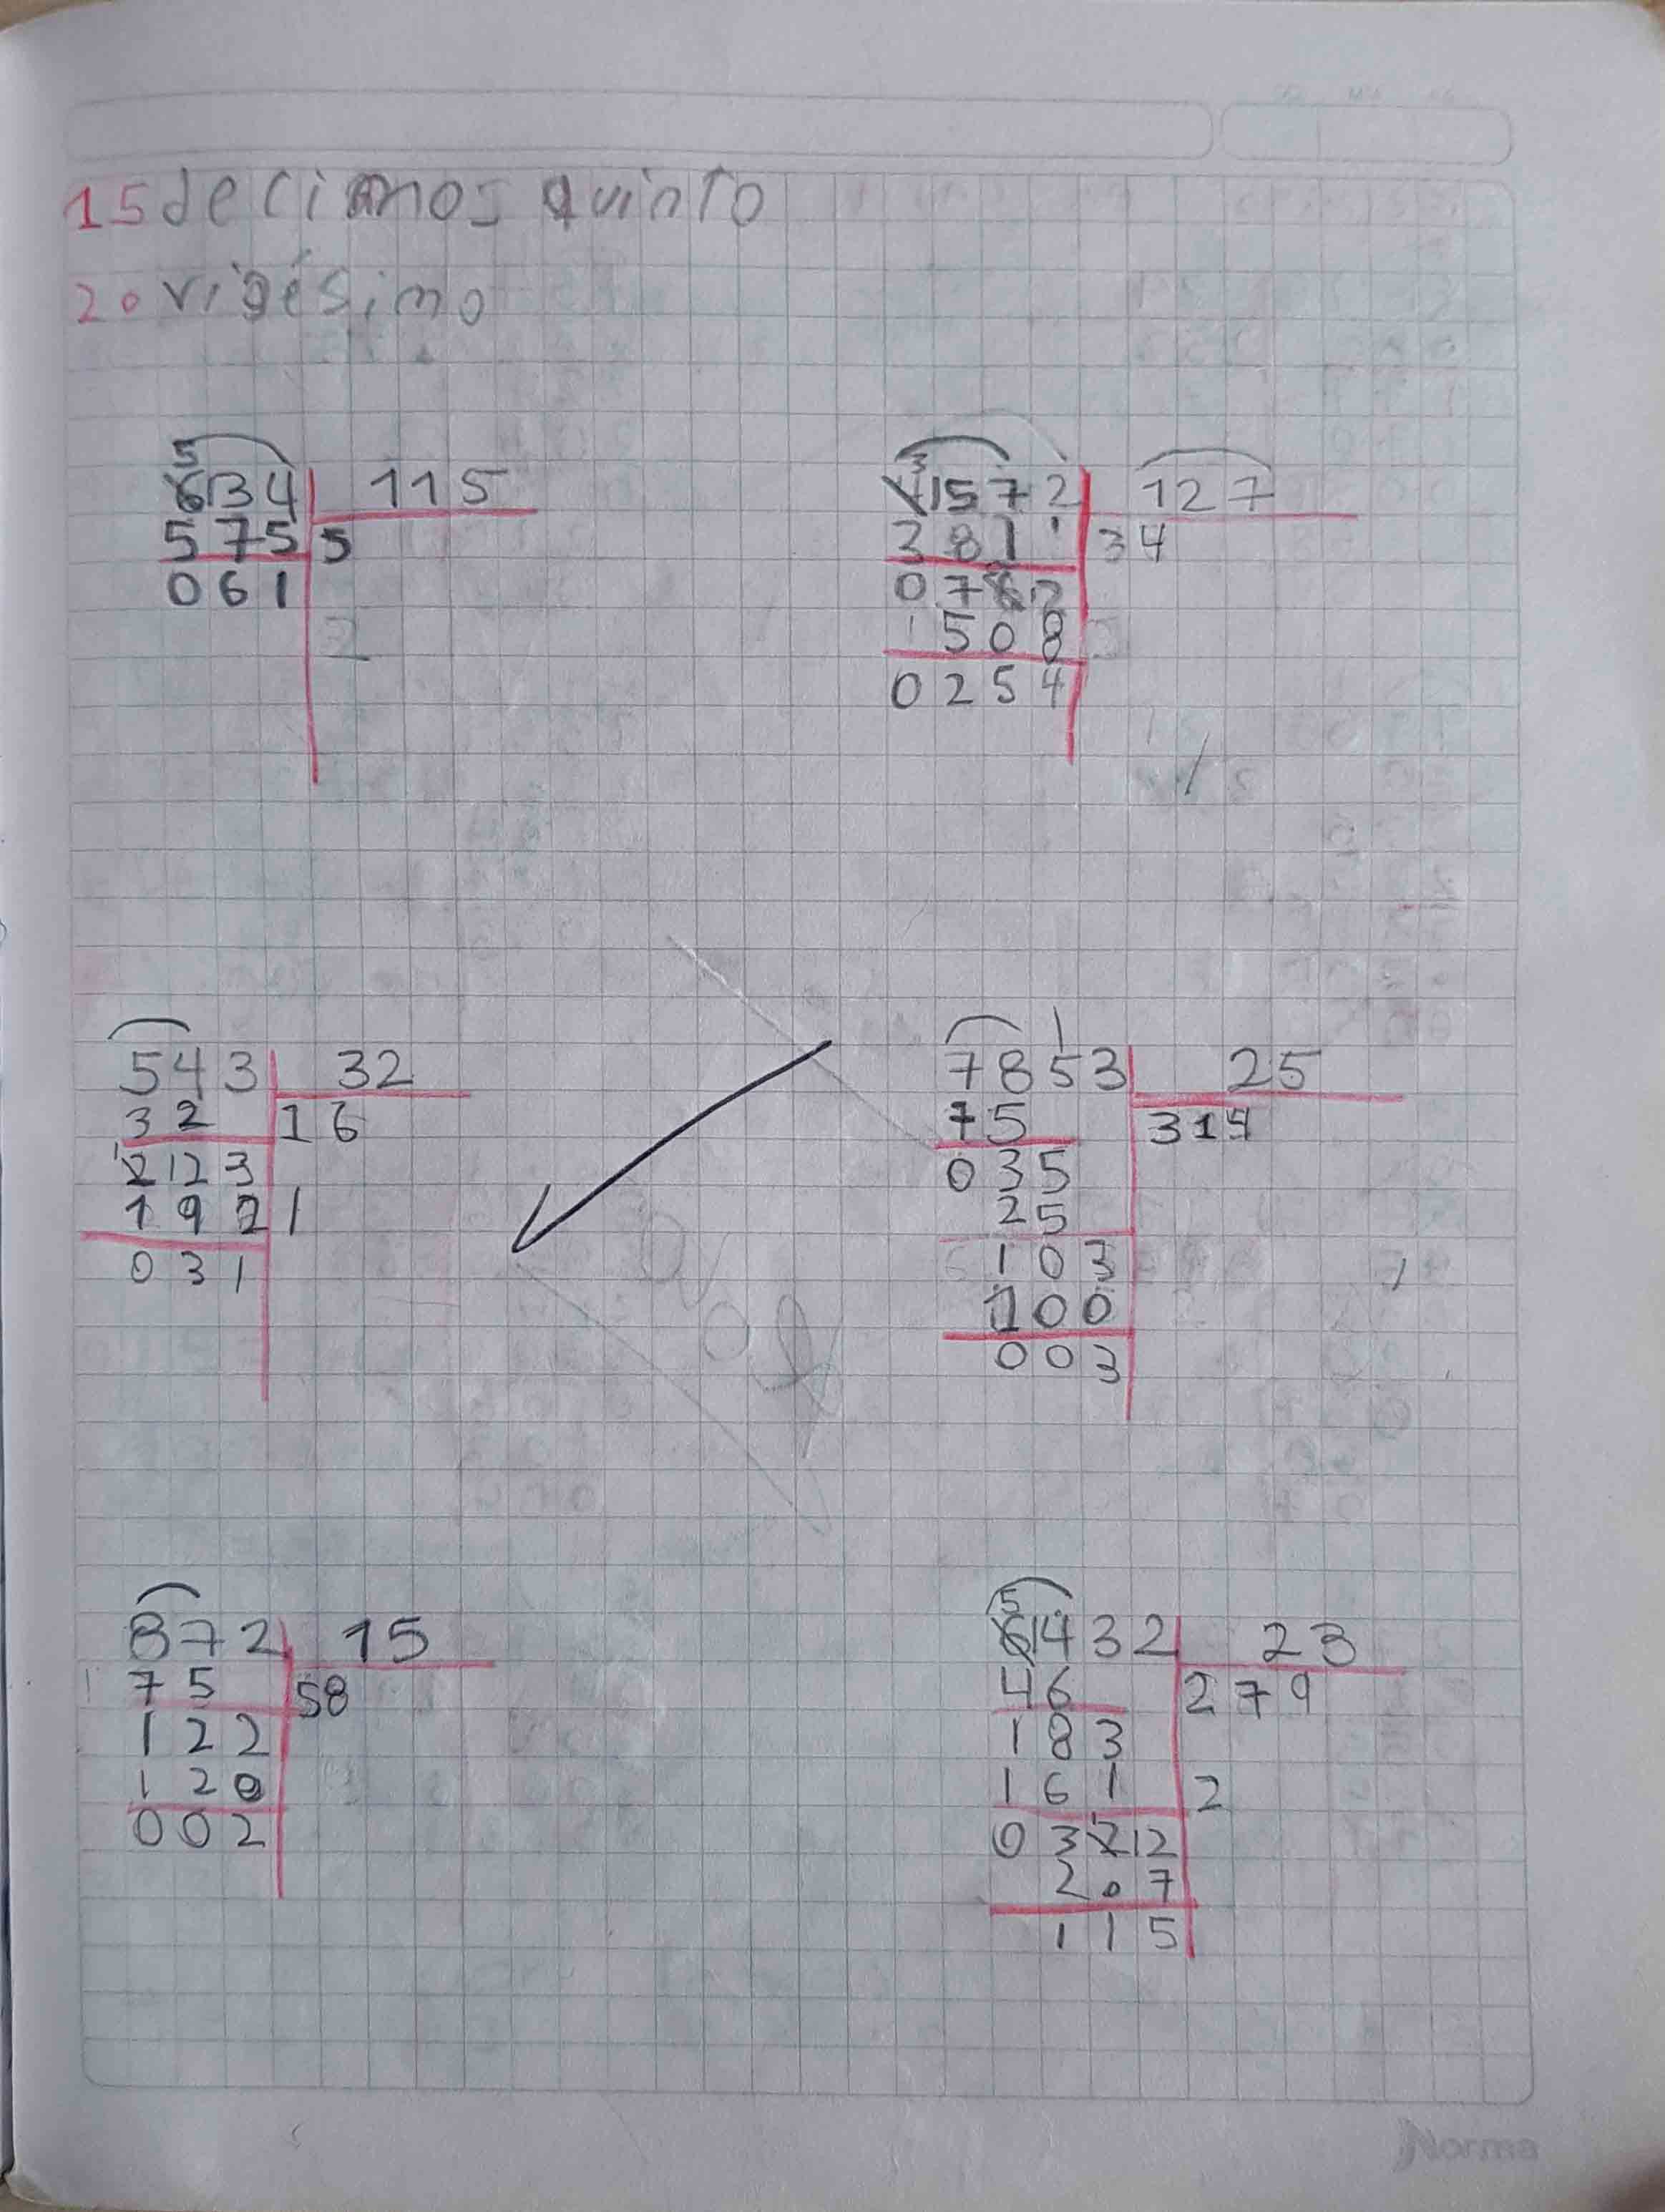 15 decimos quinto
20 vigésimo
5
634 115
575 5
061
3
4572 127
381 34
0762
508
0254
543 32
32 16
1
2123
192 1
031
7853 25
75 314
035
25
103
100
003
872 15
75 58
122
120
002
5
6432 23
46 279
183
161 2
03212
207
115
Norma